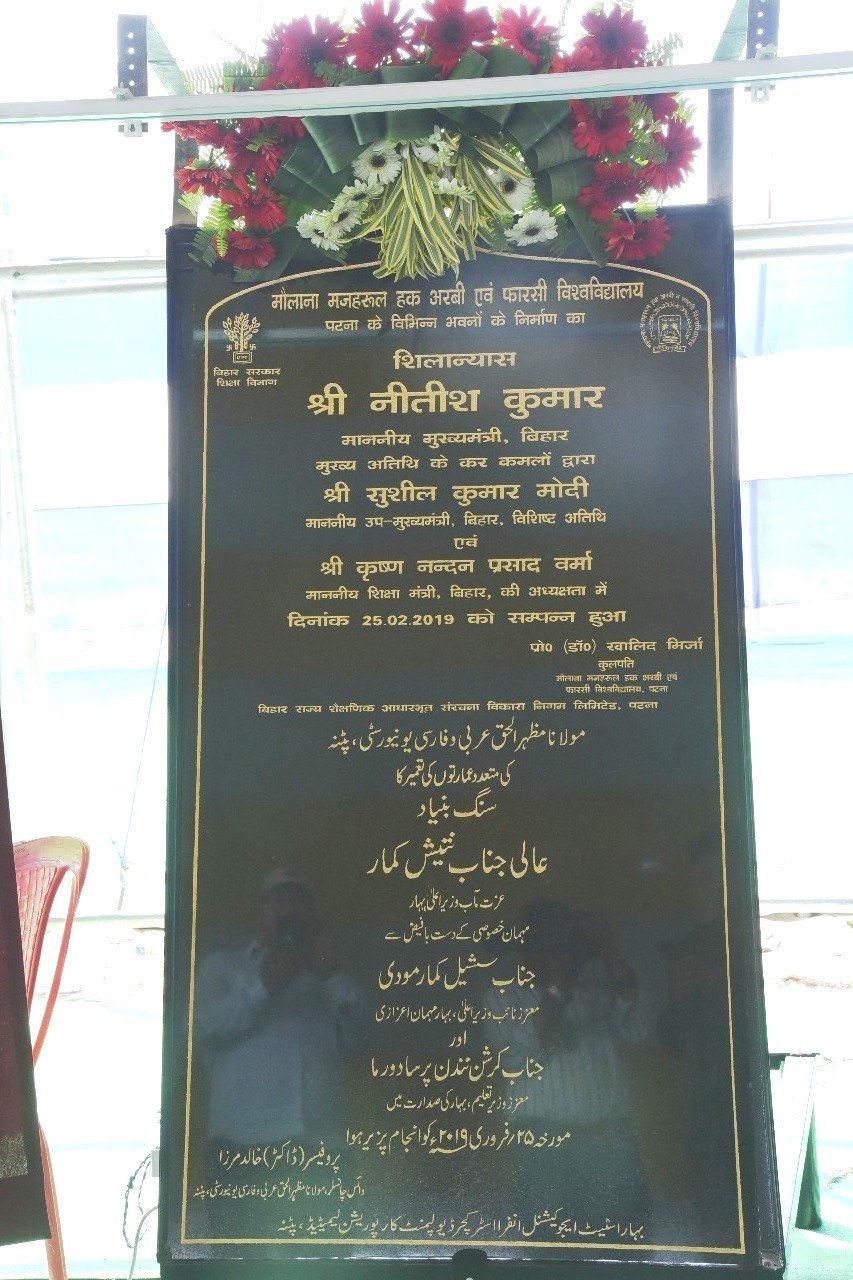 मौलाना मजहरूल हक अरबी एवं फारसी विश्वविद्यालय
पटना के विभिन्न भवनों के निर्माण का
बिहार सरकार
शिक्षा विभाग
शिलान्यास
श्री नीतीश कुमार
माननीय मुख्यमंत्री, बिहार
मुख्य अतिथि के कर कमलों द्वारा
श्री सुशील कुमार मोदी
माननीय उप-मुख्यमंत्री, बिहार, विशिष्ट अतिथि
एवं
श्री कृष्ण नन्दन प्रसाद वर्मा
माननीय शिक्षा मंत्री, बिहार, की अध्यक्षता में
दिनांक 25.02.2019 को सम्पन्न हुआ
प्रो० (डॉ०) खालिद मिर्जा
कुलपति
मौलाना मजहरूल हक अरबी एवं
फारसी विश्वविद्यालय, पटना
बिहार राज्य शैक्षणिक आधारभूत संरचना विकास निगम लिमिटेड, पटना
مولانا مظہر الحق عربی و فارسی یونیورسٹی، پٹنہ
کی متعدد عمارتوں کی تعمیر کا
سنگ بنیاد
عالی جناب نتیش کمار
عزت مآب وزیر اعلیٰ بہار
مہمان خصوصی کے دست بافیض سے
جناب سشیل کمار مودی
معزز نائب وزیر اعلیٰ، بہار مہمان اعزازی
اور
جناب کرشن نندن پرساد ورما
معزز وزیر تعلیم، بہار کی صدارت میں
مورخہ ۲۵؍ فروری ۲۰۱۹ء کو انجام پزیر ہوا
پروفیسر (ڈاکٹر) خالد مرزا
وائس چانسلر، مولانا مظہر الحق عربی و فارسی یونیورسٹی، پٹنہ
بہار اسٹیٹ ایجوکیشنل انفرا اسٹرکچر ڈیولپمنٹ کارپوریشن لیمیٹیڈ، پٹنہ